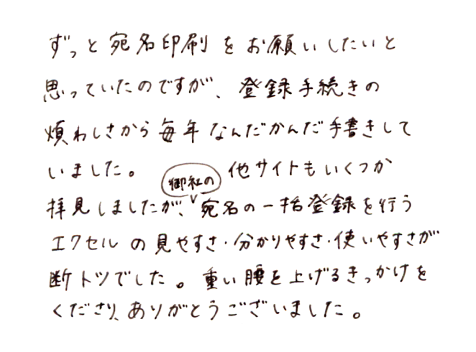 ずっと宛名印刷をお願いしたいと
思っていたのですが、登録手続きの
煩わしさから毎年なんだかんだ手書きして
いました。 他サイトもいくつか
御社の
拝見しましたが、宛名の一括登録を行う
エクセルの見やすさ・分かりやすさ・使いやすさが
断トツでした。重い腰を上げるきっかけを
くださり、ありがとうございました。